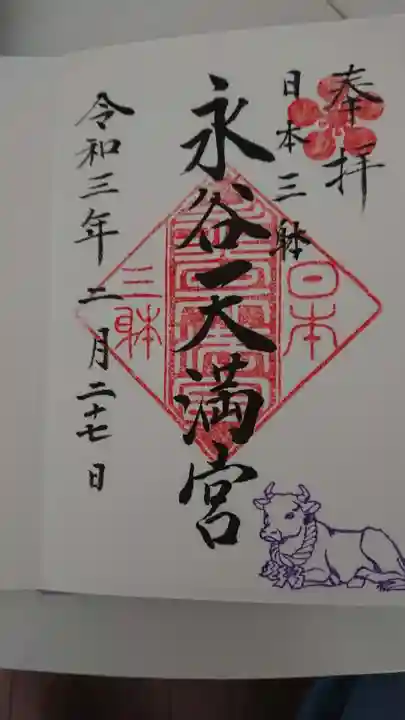 奉拝
日本三躰
永谷天満宮
令和三年二月二十七日
日本
三躰